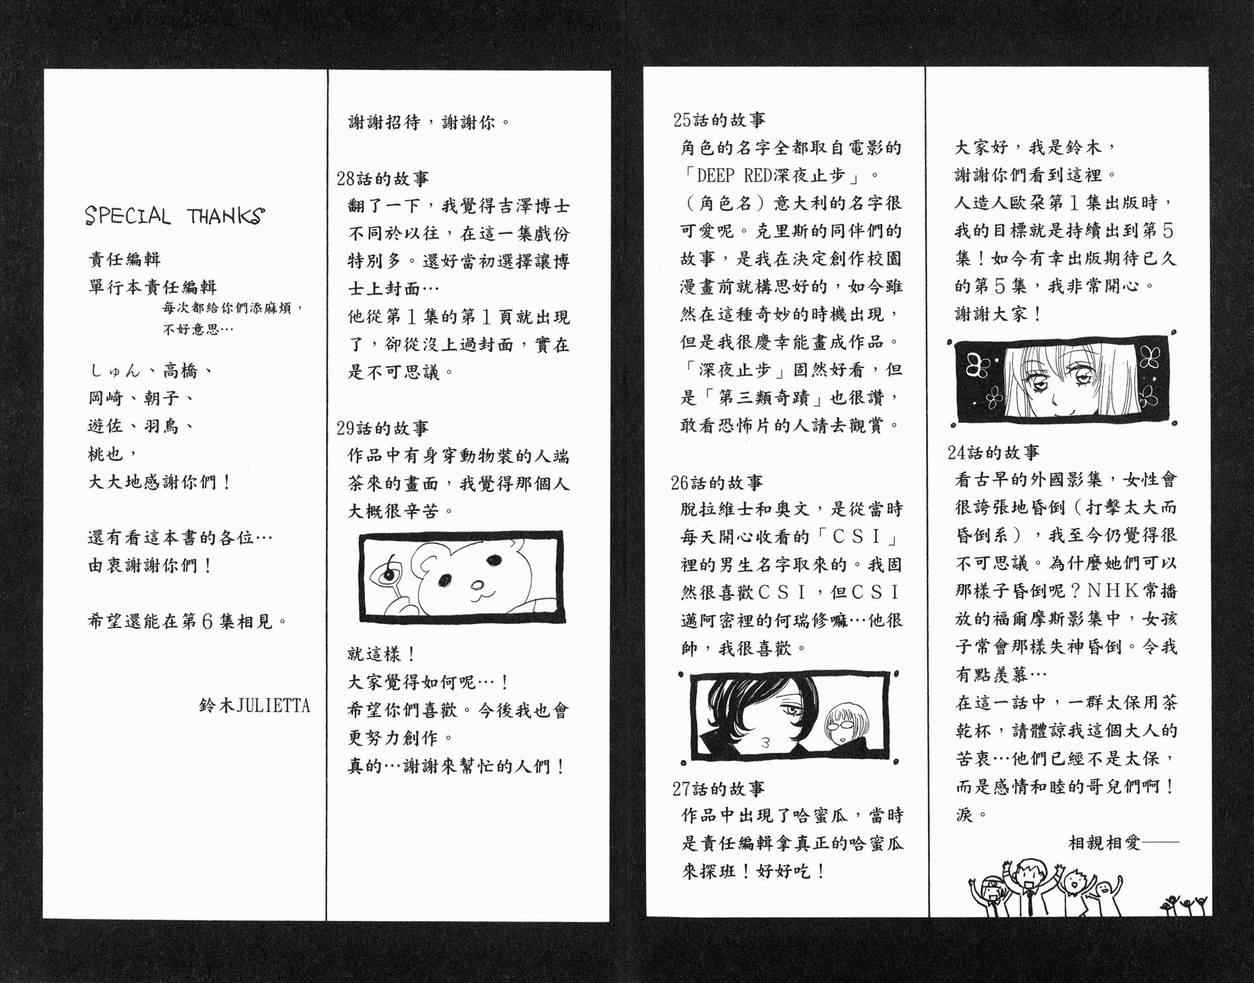 大家好，我是鈴木，
謝謝你們看到這裡。
人造人歐朶第１集出版時，
我的目標就是持續出到第５
集！如今有幸出版期待已久
的第５集，我非常開心。
謝謝大家！
24話的故事
看古早的外國影集，女性會
很誇張地昏倒（打擊太大而
昏倒系），我至今仍覺得很
不可思議。為什麼她們可以
那樣子昏倒呢？ＮＨＫ常播
放的福爾摩斯影集中，女孩
子常會那樣失神昏倒。令我
有點羨慕⋯
在這一話中，一群太保用茶
乾杯，請體諒我這個大人的
苦衷⋯他們已經不是太保，
而是感情和睦的哥兒們啊！
淚。
相親相愛——
25話的故事
角色的名字全都取自電影的
「DEEP RED深夜止步」。
（角色名）意大利的名字很
可愛呢。克里斯的同伴們的
故事，是我在決定創作校園
漫畫前就構思好的，如今雖
然在這種奇妙的時機出現，
但是我很慶幸能畫成作品。
「深夜止步」固然好看，但
是「第三類奇蹟」也很讚，
敢看恐怖片的人請去觀賞。
26話的故事
脫拉維士和奧文，是從當時
每天開心收看的「ＣＳＩ」
裡的男生名字取來的。我固
然很喜歡ＣＳＩ，但ＣＳＩ
邁阿密裡的何瑞修嘛⋯他很
帥，我很喜歡。
27話的故事
作品中出現了哈蜜瓜，當時
是責任編輯拿真正的哈蜜瓜
來探班！好好吃！
謝謝招待，謝謝你。
28話的故事
翻了一下，我覺得吉澤博士
不同於以往，在這一集戲份
特別多。還好當初選擇讓博
士上封面⋯
他從第１集的第１頁就出現
了，卻從沒上過封面，實在
是不可思議。
29話的故事
作品中有身穿動物裝的人端
茶來的畫面，我覺得那個人
大概很辛苦。
就這樣！
大家覺得如何呢⋯！
希望你們喜歡。今後我也會
更努力創作。
真的⋯謝謝來幫忙的人們！
SPECIAL THANKS
責任編輯
單行本責任編輯
每次都給你們添麻煩，
不好意思⋯
しゅん、高橋、
岡崎、朝子、
遊佐、羽鳥、
桃也，
大大地感謝你們！
還有看這本書的各位⋯
由衷謝謝你們！
希望還能在第６集相見。
鈴木JULIETTA